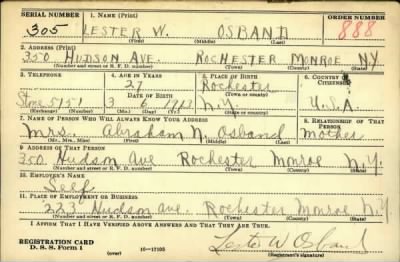 SERIAL NUMBER 1. NAME (Print) ORDER NUMBER
305 LESTER W. OSBAND 888
(First) (Middle) (Last)
2. ADDRESS (Print)
350 HUDSON AVE. ROCHESTER MONROE NY
(Number and street or R. F. D. number) (Town) (County) (State)
3. TELEPHONE 4. AGE IN YEARS 5. PLACE OF BIRTH 6. COUNTRY OF CITIZENSHIP
27 Rochester
(Town or county)
Stone 5151 3 6 1913 N.Y. U.S.A.
(Exchange) (No.) (Mo.) (Day) (Yr.) (State or country)
7. NAME OF PERSON WHO WILL ALWAYS KNOW YOUR ADDRESS 8. RELATIONSHIP OF THAT PERSON
Mrs. Abraham N. Osband Mother
(Mr., Mrs., Miss) (First) (Middle) (Last)
9. ADDRESS OF THAT PERSON
350 Hudson Ave Rochester Monroe N.Y.
(Number and street or R. F. D. number) (Town) (County) (State)
10. EMPLOYER'S NAME
Self
11. PLACE OF EMPLOYMENT OR BUSINESS
223 Hudson ave. Rochester Monroe N.Y.
(Number and street or R. F. D. number) (Town) (County) (State)
I AFFIRM THAT I HAVE VERIFIED ABOVE ANSWERS AND THAT THEY ARE TRUE.
REGISTRATION CARD
D. S. S. Form 1 (over) 16—17105 Lester W Osband